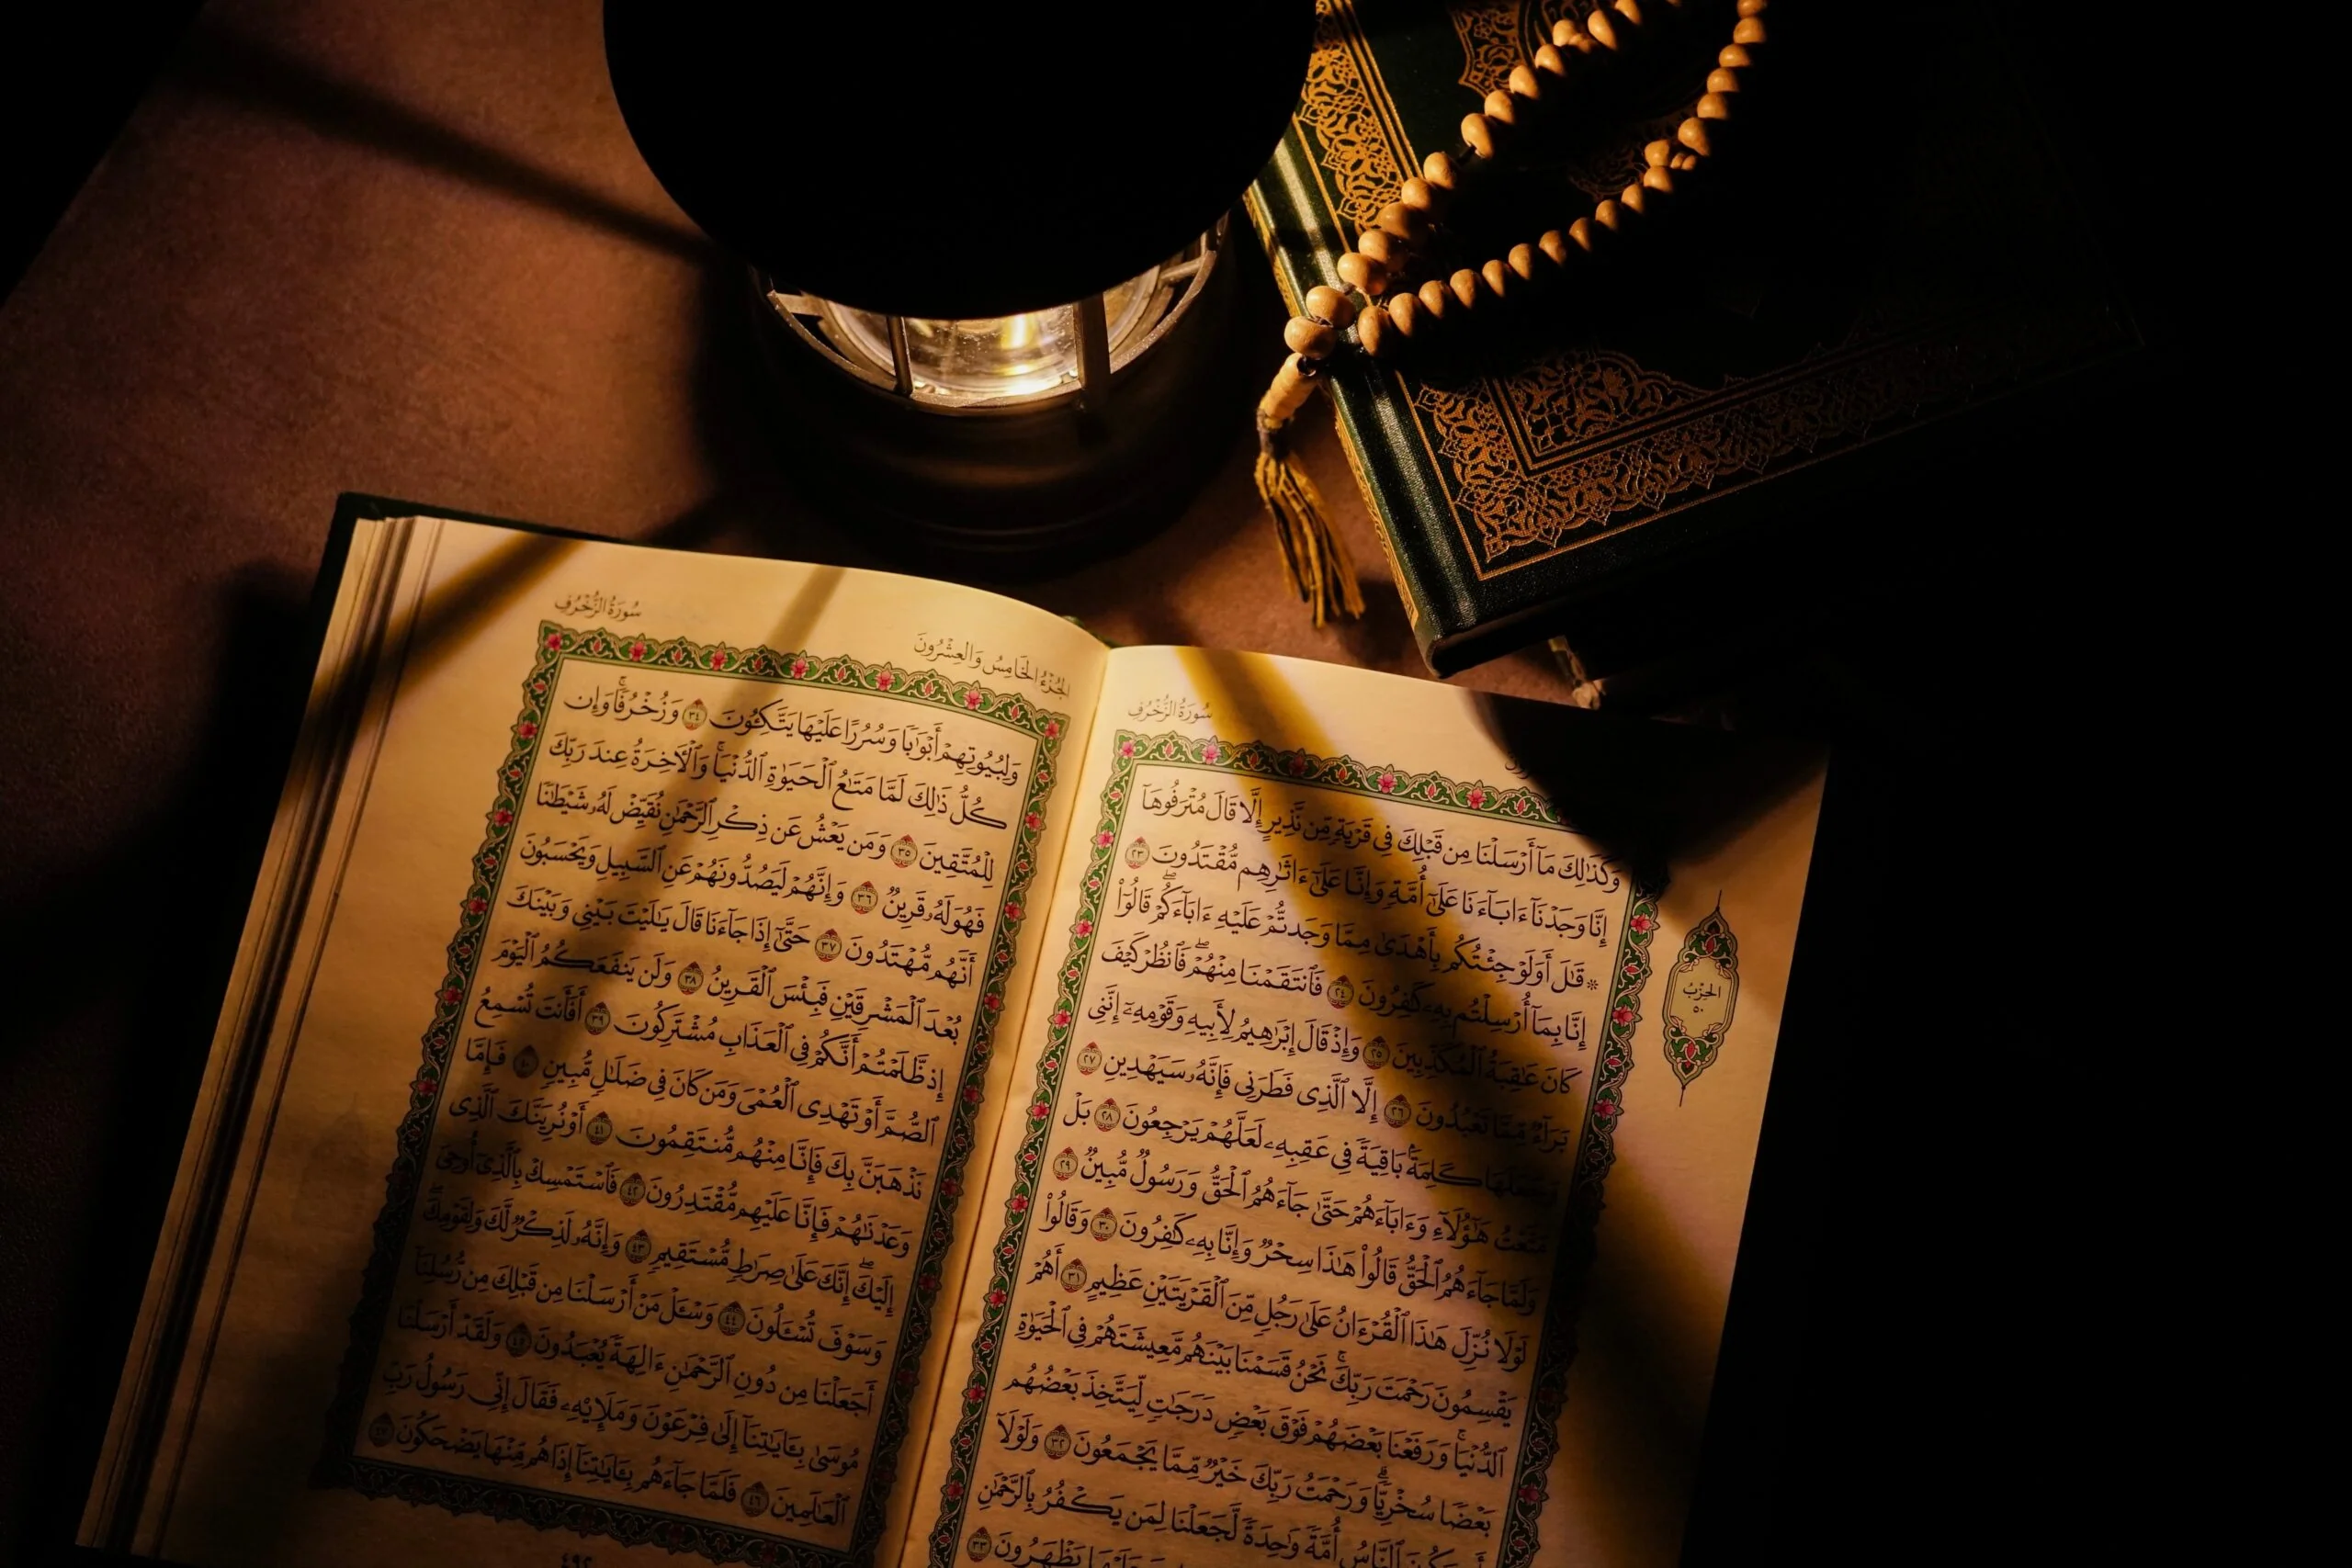 سُورَةُ الزُّخْرُفِ
وَكَذَٰلِكَ مَآ أَرْسَلْنَا مِن قَبْلِكَ فِى قَرْيَةٍ مِّن نَّذِيرٍ إِلَّا قَالَ مُتْرَفُوهَآ
إِنَّا وَجَدْنَآ ءَابَآءَنَا عَلَىٰٓ أُمَّةٍ وَإِنَّا عَلَىٰٓ ءَاثَـٰرِهِم مُّقْتَدُونَ ٢٣
۞ قَـٰلَ أَوَلَوْ جِئْتُكُم بِأَهْدَىٰ مِمَّا وَجَدتُّمْ عَلَيْهِ ءَابَآءَكُمْ ۖ قَالُوٓا۟
إِنَّا بِمَآ أُرْسِلْتُم بِهِۦ كَـٰفِرُونَ ٢٤ فَٱنتَقَمْنَا مِنْهُمْ ۖ فَٱنظُرْ كَيْفَ
كَانَ عَـٰقِبَةُ ٱلْمُكَذِّبِينَ ٢٥ وَإِذْ قَالَ إِبْرَٰهِيمُ لِأَبِيهِ وَقَوْمِهِۦٓ إِنَّنِى
بَرَآءٌ مِّمَّا تَعْبُدُونَ ٢٦ إِلَّا ٱلَّذِى فَطَرَنِى فَإِنَّهُۥ سَيَهْدِينِ ٢٧
وَجَعَلَهَا كَلِمَةًۢ بَاقِيَةً فِى عَقِبِهِۦ لَعَلَّهُمْ يَرْجِعُونَ ٢٨ بَلْ
مَتَّعْتُ هَـٰٓؤُلَآءِ وَءَابَآءَهُمْ حَتَّىٰ جَآءَهُمُ ٱلْحَقُّ وَرَسُولٌ مُّبِينٌ ٢٩
وَلَمَّا جَآءَهُمُ ٱلْحَقُّ قَالُوا۟ هَـٰذَا سِحْرٌ وَإِنَّا بِهِۦ كَـٰفِرُونَ ٣٠ وَقَالُوا۟
لَوْلَا نُزِّلَ هَـٰذَا ٱلْقُرْءَانُ عَلَىٰ رَجُلٍ مِّنَ ٱلْقَرْيَتَيْنِ عَظِيمٍ ٣١ أَهُمْ
يَقْسِمُونَ رَحْمَتَ رَبِّكَ ۚ نَحْنُ قَسَمْنَا بَيْنَهُم مَّعِيشَتَهُمْ فِى ٱلْحَيَوٰةِ
ٱلدُّنْيَا ۚ وَرَفَعْنَا بَعْضَهُمْ فَوْقَ بَعْضٍ دَرَجَـٰتٍ لِّيَتَّخِذَ بَعْضُهُم
بَعْضًا سُخْرِيًّا ۗ وَرَحْمَتُ رَبِّكَ خَيْرٌ مِّمَّا يَجْمَعُونَ ٣٢ وَلَوْلَآ
ٱلنَّاسُ أُمَّةً وَٰحِدَةً لَّجَعَلْنَا لِمَن يَكْفُرُ بِٱلرَّحْمَـٰنِ
يَظْهَرُونَ ٣٣
الحِزْبُ
٥٠
الجُزْءُ الخَامِسُ وَالعِشْرُونَ
سُورَةُ الزُّخْرُفِ
وَلِبُيُوتِهِمْ أَبْوَٰبًا وَسُرُرًا عَلَيْهَا يَتَّكِـُٔونَ ٣٤ وَزُخْرُفًا ۚ وَإِن
كُلُّ ذَٰلِكَ لَمَّا مَتَـٰعُ ٱلْحَيَوٰةِ ٱلدُّنْيَا ۚ وَٱلْـَٔاخِرَةُ عِندَ رَبِّكَ
لِلْمُتَّقِينَ ٣٥ وَمَن يَعْشُ عَن ذِكْرِ ٱلرَّحْمَـٰنِ نُقَيِّضْ لَهُۥ شَيْطَـٰنًا
فَهُوَ لَهُۥ قَرِينٌ ٣٦ وَإِنَّهُمْ لَيَصُدُّونَهُمْ عَنِ ٱلسَّبِيلِ وَيَحْسَبُونَ
أَنَّهُم مُّهْتَدُونَ ٣٧ حَتَّىٰٓ إِذَا جَآءَنَا قَالَ يَـٰلَيْتَ بَيْنِى وَبَيْنَكَ
بُعْدَ ٱلْمَشْرِقَيْنِ فَبِئْسَ ٱلْقَرِينُ ٣٨ وَلَن يَنفَعَكُمُ ٱلْيَوْمَ
إِذ ظَّلَمْتُمْ أَنَّكُمْ فِى ٱلْعَذَابِ مُشْتَرِكُونَ ٣٩ أَفَأَنتَ تُسْمِعُ
ٱلصُّمَّ أَوْ تَهْدِى ٱلْعُمْىَ وَمَن كَانَ فِى ضَلَـٰلٍ مُّبِينٍ ٤٠ فَإِمَّا
نَذْهَبَنَّ بِكَ فَإِنَّا مِنْهُم مُّنتَقِمُونَ ٤١ أَوْ نُرِيَنَّكَ ٱلَّذِى
وَعَدْنَـٰهُمْ فَإِنَّا عَلَيْهِم مُّقْتَدِرُونَ ٤٢ فَٱسْتَمْسِكْ بِٱلَّذِىٓ أُوحِىَ
إِلَيْكَ ۖ إِنَّكَ عَلَىٰ صِرَٰطٍ مُّسْتَقِيمٍ ٤٣ وَإِنَّهُۥ لَذِكْرٌ لَّكَ وَلِقَوْمِكَ ۖ
وَسَوْفَ تُسْـَٔلُونَ ٤٤ وَسْـَٔلْ مَنْ أَرْسَلْنَا مِن قَبْلِكَ مِن رُّسُلِنَآ
أَجَعَلْنَا مِن دُونِ ٱلرَّحْمَـٰنِ ءَالِهَةً يُعْبَدُونَ ٤٥ وَلَقَدْ أَرْسَلْنَا
مُوسَىٰ بِـَٔايَـٰتِنَآ إِلَىٰ فِرْعَوْنَ وَمَلَإِي۟هِۦ فَقَالَ إِنِّى رَسُولُ رَبِّ
ٱلْعَـٰلَمِينَ ٤٦ فَلَمَّا جَآءَهُم بِـَٔايَـٰتِنَآ إِذَا هُم مِّنْهَا يَضْحَكُونَ ٤٧
٤٩٢